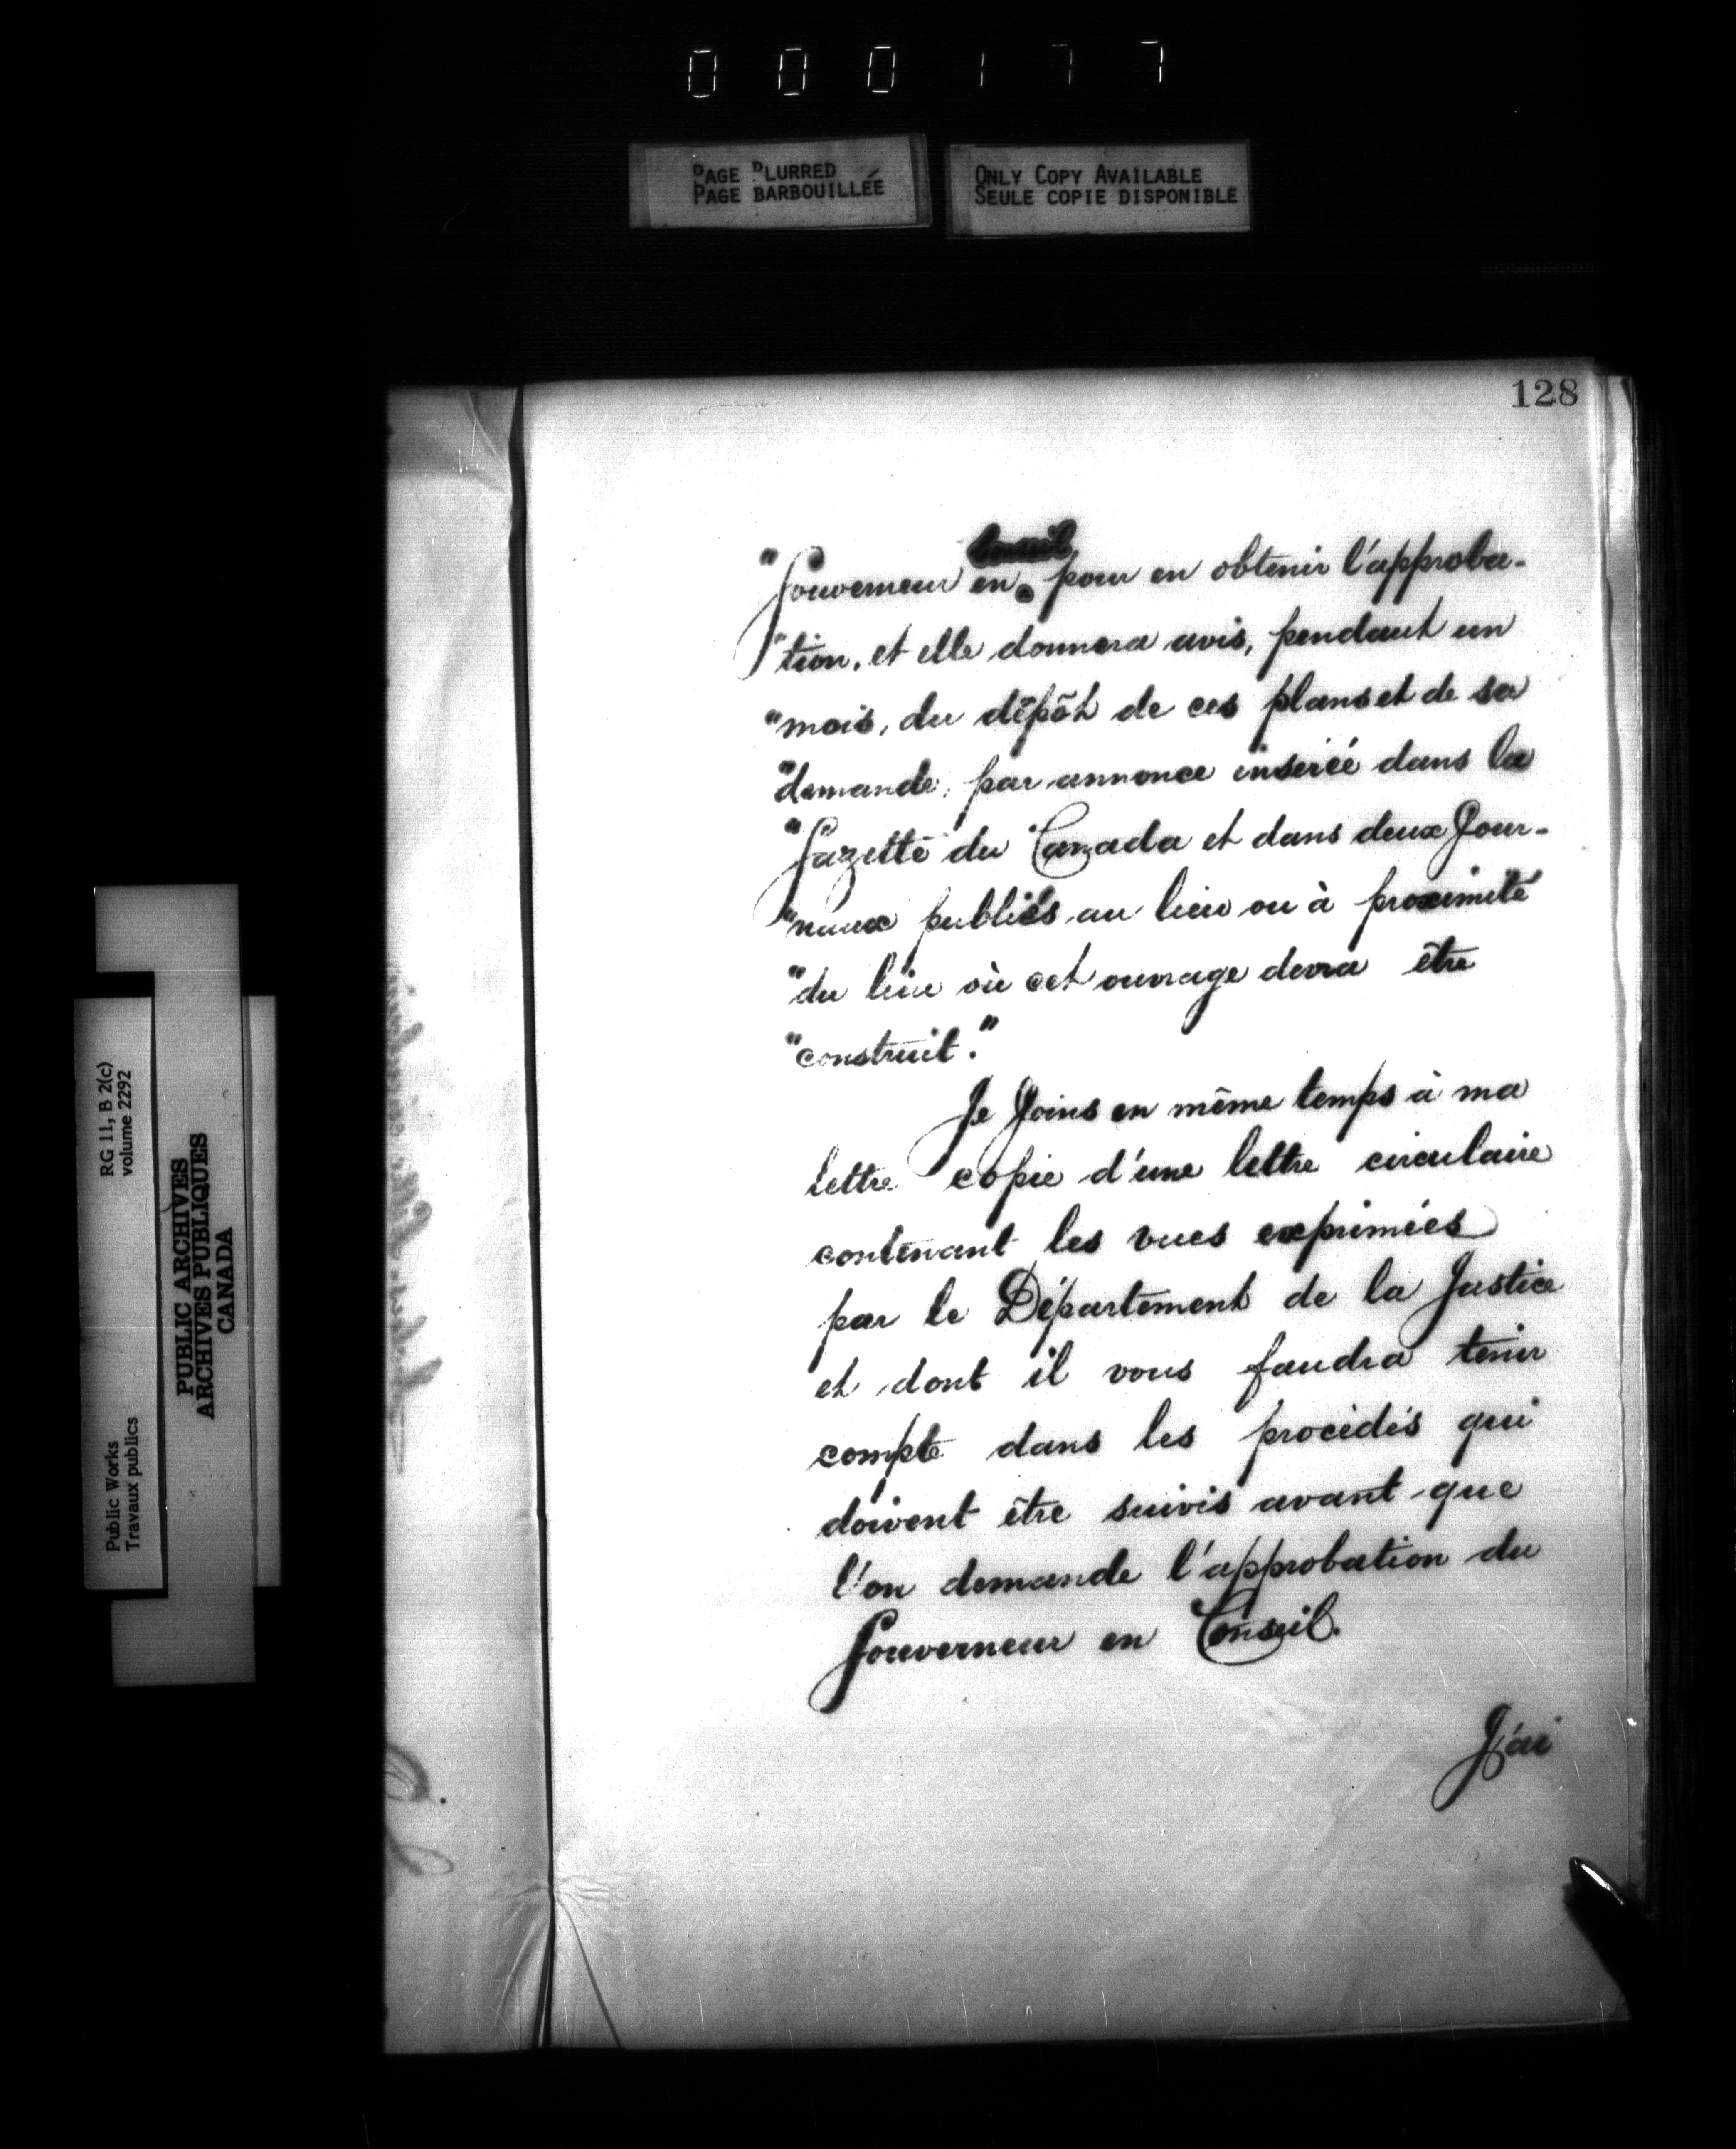 000177
PAGE BLURRED
PAGE BARBOUILLÉE
ONLY COPY AVAILABLE
SEULE COPIE DISPONIBLE
128
Conseil
"Gouverneur en pour en obtenir l'approba-
"tion, et elle donnera avis, pendant un
"mois, du dépôt de ces plans et de sa
"demande, par annonce inserée dans la
"Gazette du Canada et dans deux Jour-
"naux publiés au lieu ou à proximité
"du lieu où cet ouvrage devra être
"construit."
Je Joins en même temps à ma
lettre copie d'une lettre circulaire
contenant les vues exprimées
par le Département de la Justice
et dont il vous faudra tenir
compte dans les procédés qui
doivent être suivis avant que
l'on demande l'approbation du
Gouverneur en Conseil.
J'ai
RG 11, B 2(c)
volume 2292
Public Works
Travaux publics
PUBLIC ARCHIVES
ARCHIVES PUBLIQUES
CANADA